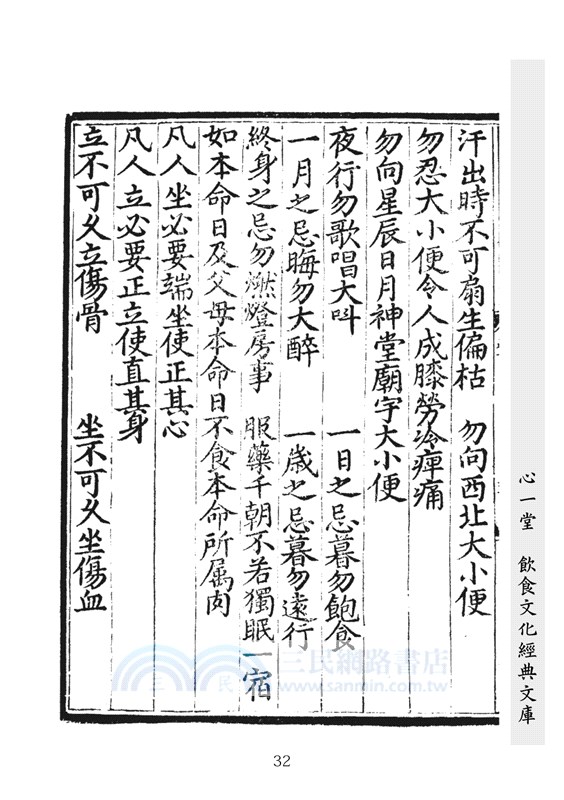 汗出時不可扇生偏枯　勿向西北大小便
勿忍大小便令人成膝勞冷痺痛
勿向星辰日月神堂廟宇大小便
夜行勿歌唱大叫　一日之忌暮勿飽食
一月之忌晦勿大醉　一歲之忌暮勿遠行
終身之忌勿燃燈房事　服藥千朝不若獨眠一宿
如本命日及父母本命日不食本命所属肉
凡人坐必要端坐使正其心
凡人立必要正立使直其身
立不可久立傷骨　坐不可久坐傷血
心一堂　飲食文化經典文庫
三民網路書店
www.sanmin.com.tw
三民
32